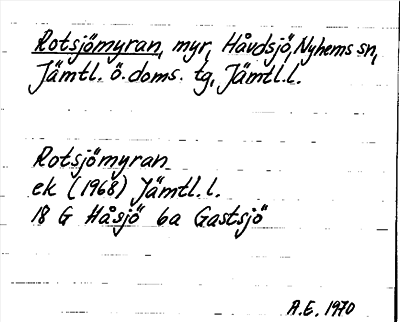 Rotsjömyran, myr, Håvdsjö, Nyhems sn,
Jämtl. ö. doms. tg, Jämtl.l.
Rotsjömyran
ek (1968) Jämtl.l.
18 G Håsjö 6a Gastsjö
A.E. 1970